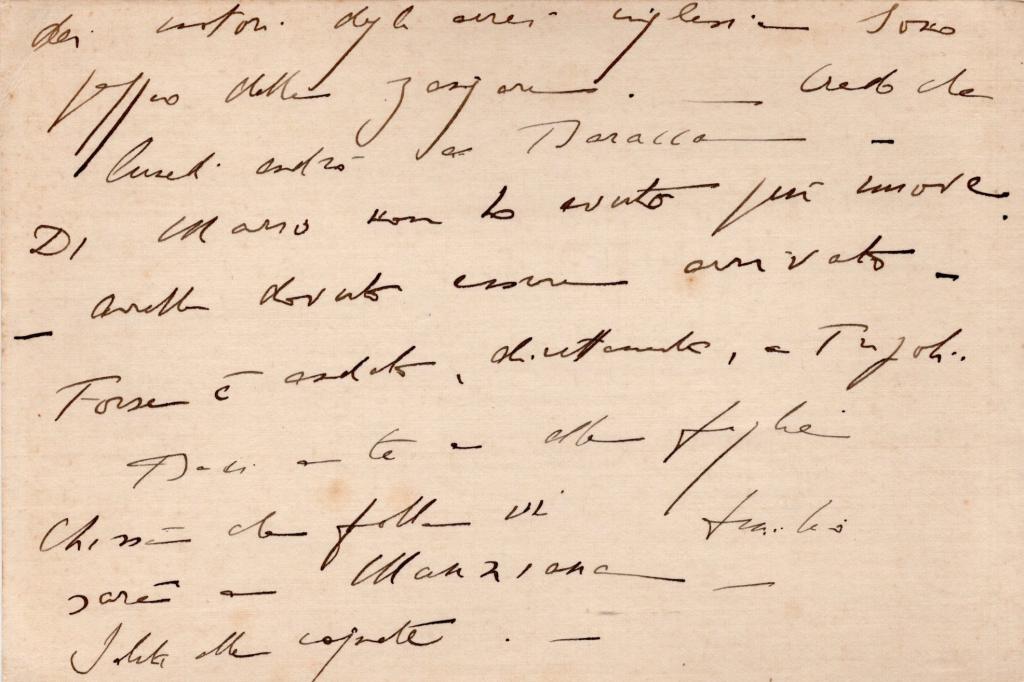 dei motori degli aerei inglesi. Sono
peggio delle zanzare. — Credo che
lunedì andrò a Baracca —
Di Mario non ho avuto più nuove.
— avrebbe dovuto essere arrivato —
Forse è andato, direttamente, a Tripoli.
Baci a te e alle figlie
Chissà che folla vi
sarà a Manziana —
alle cognate. —